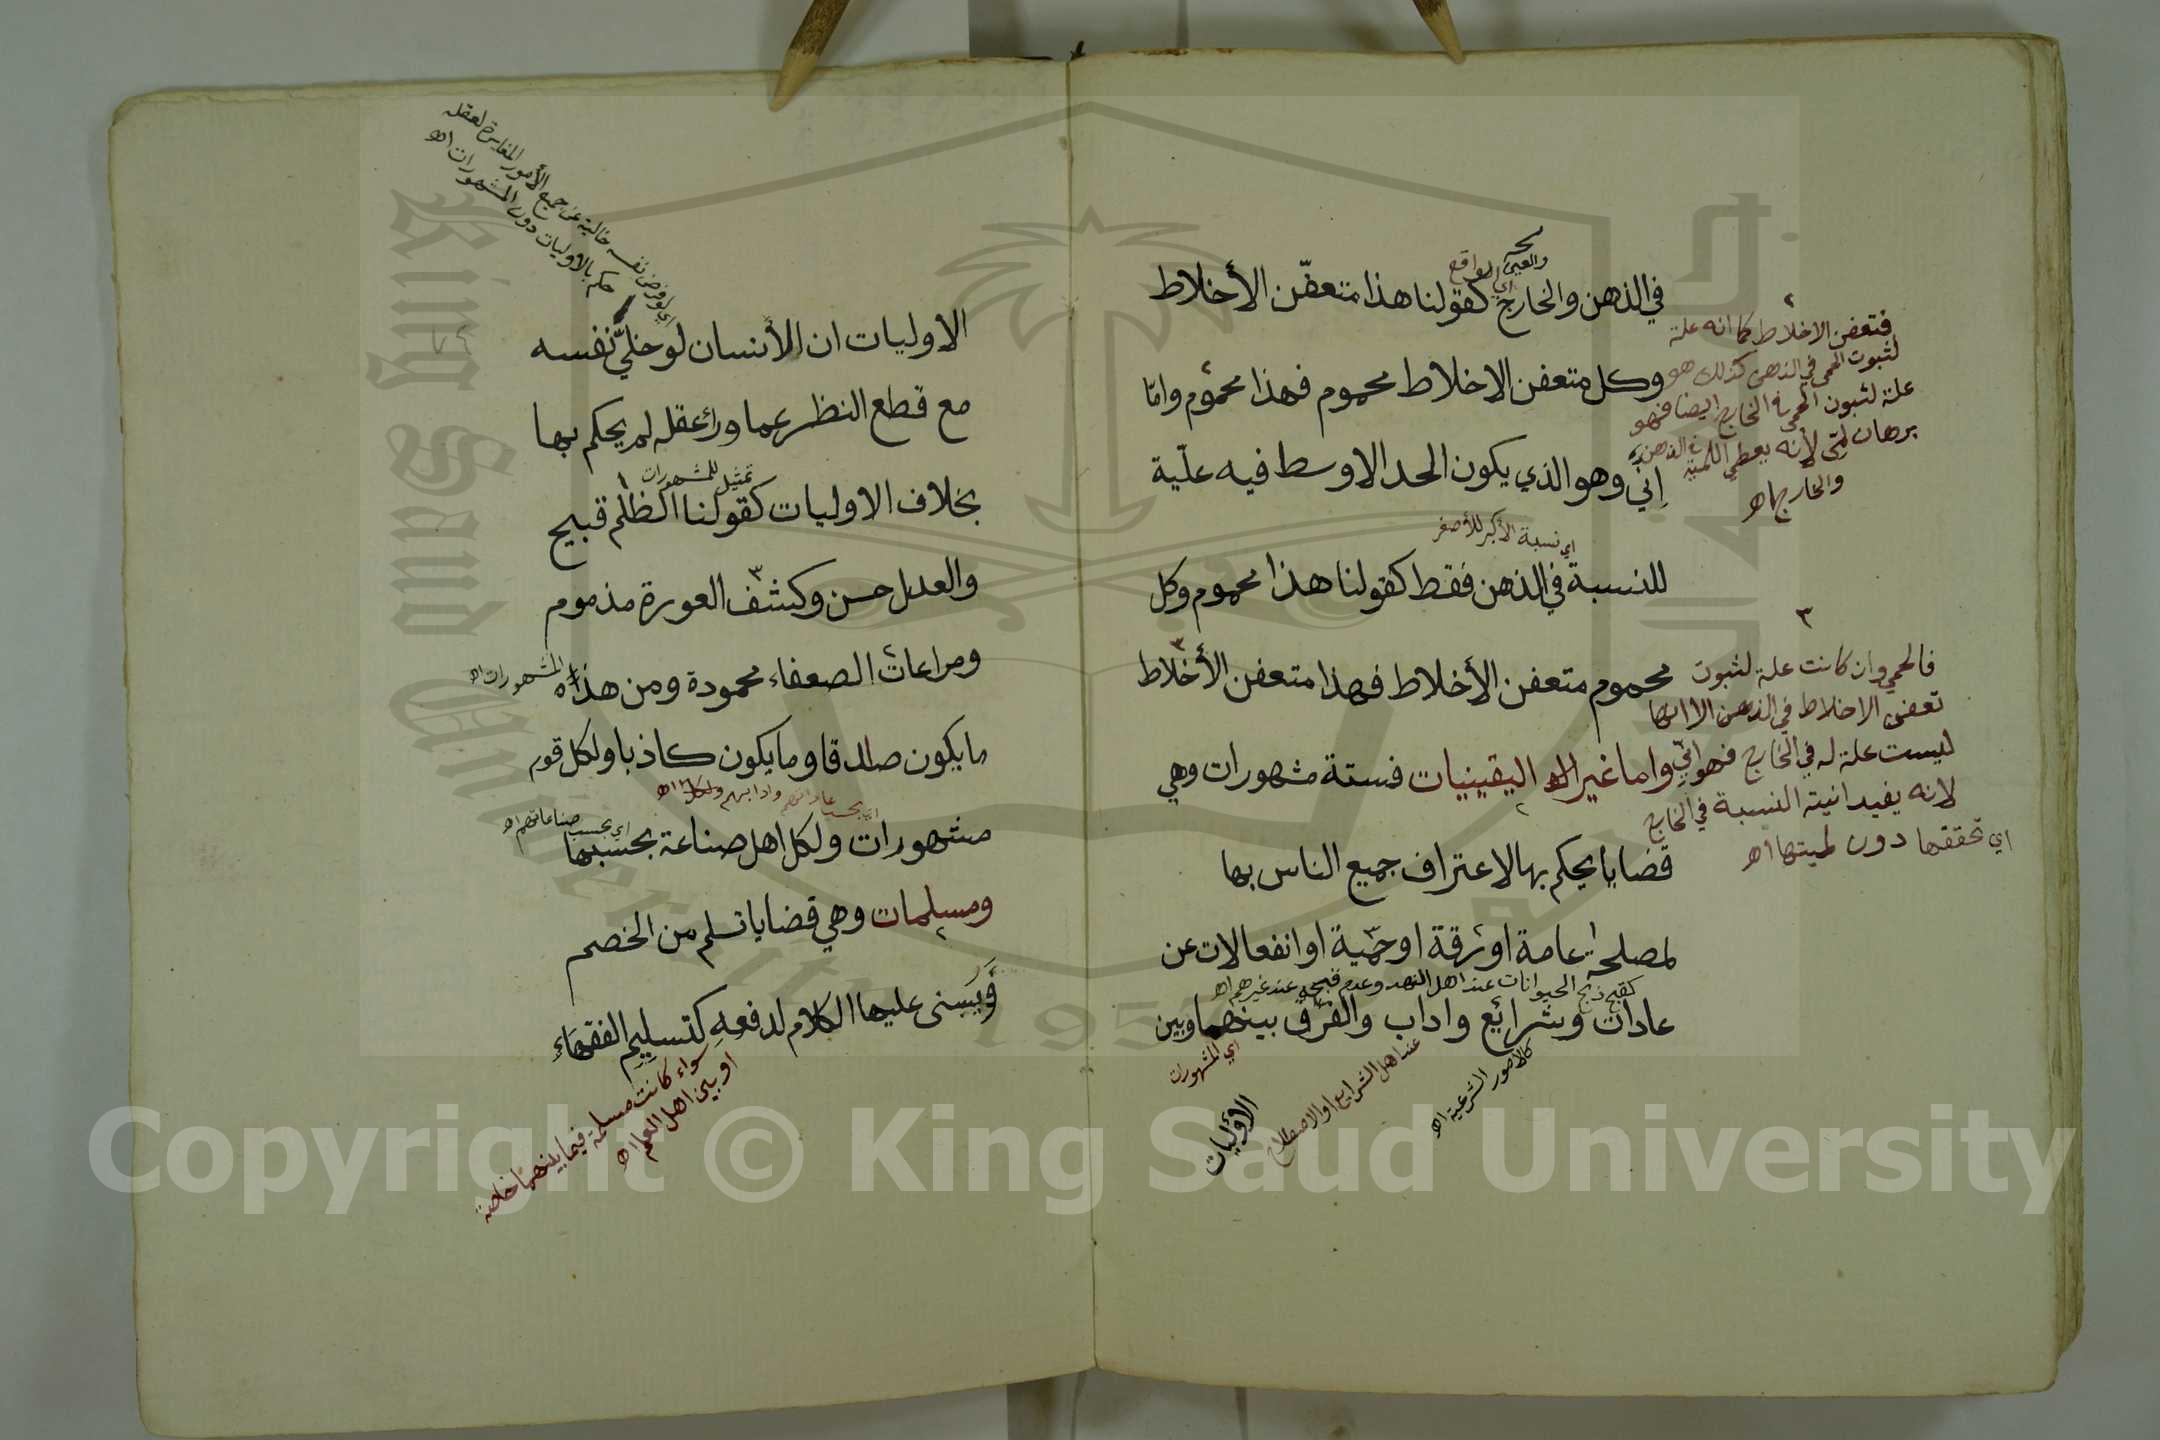 والعين
أي الواقع
في الذهن والخارج كقولنا هذا متعفّن الأخلاط
وكل متعفن الاخلاط محموم فهذا محموم وامّا
إنّي وهو الذي يكون الحد الاوسط فيه علّية
اي نسبة الأكبر للأصغر
للنسبة في الذهن فقط كقولنا هذا محموم وكل
محموم متعفن الأخلاط فهذا متعفن الأخلاط
واما غير اليقينيات فستة مشهورات وهي
قضايا يحكم بها لاعتراف جميع الناس بها
لمصلحة عامة او رقة او حمّية او انفعالات عن
كقبح ذبح الحيوانات عند اهل الهند وعدم قبحه عند غيرهم اهـ
عادات وشرايع واداب والفرق بينهما وبين
اي المشهورات
عند اهل الشرايع او الاصطلاح
كالأمور الشرعية اهـ
الاوّليات
٢
فتعفن الاخلاط كما انه علة
لثبوت الحمى في الذهن كذلك هو
علة لثبوت الحمى في الخارج ايضا فهو
برهان لمّي لأنه يعطي اللمية في الذهن
والخارج اهـ
٣
فالحمي وان كانت علة لثبوت
تعفن الاخلاط في الذهن الا انها
ليست علة له في الخارج فهو انّي
لانه يفيد انية النسبة في الخارج
اي تحققها دون لميتها اهـ
اي لو فرض نفسه خالية عن جميع الأمور المغايرة لعقله
حكم بالاوليات دون المشهورات اهـ
الاوليات ان الأنسان لو خلّي نفسه
مع قطع النظر عما وراء عقله لم يحكم بها
تمثيل للمشهورات
بخلاف الاوليات كقولنا الظلم قبيح
والعدل حسن وكشف العورة مذموم
ومراعات الضعفاء محمودة ومن هذه
المشهورات اهـ
ما يكون صادقا وما يكون كاذبا ولكل قوم
اي بحسب عاداتهم وادابهم
مشهورات ولكل اهل صناعة بحسبها
اي بحسب صناعاتهم اهـ
ومسلمات وهي قضايا تسلم من الخصم
ويبنى عليها الكلام لدفعه كتسليم الفقهاء
سواء كانت مسلمة فيما بينهما خاصة
او بين اهل العلم اهـ
Copyright © King Saud University
King Saud University
1957